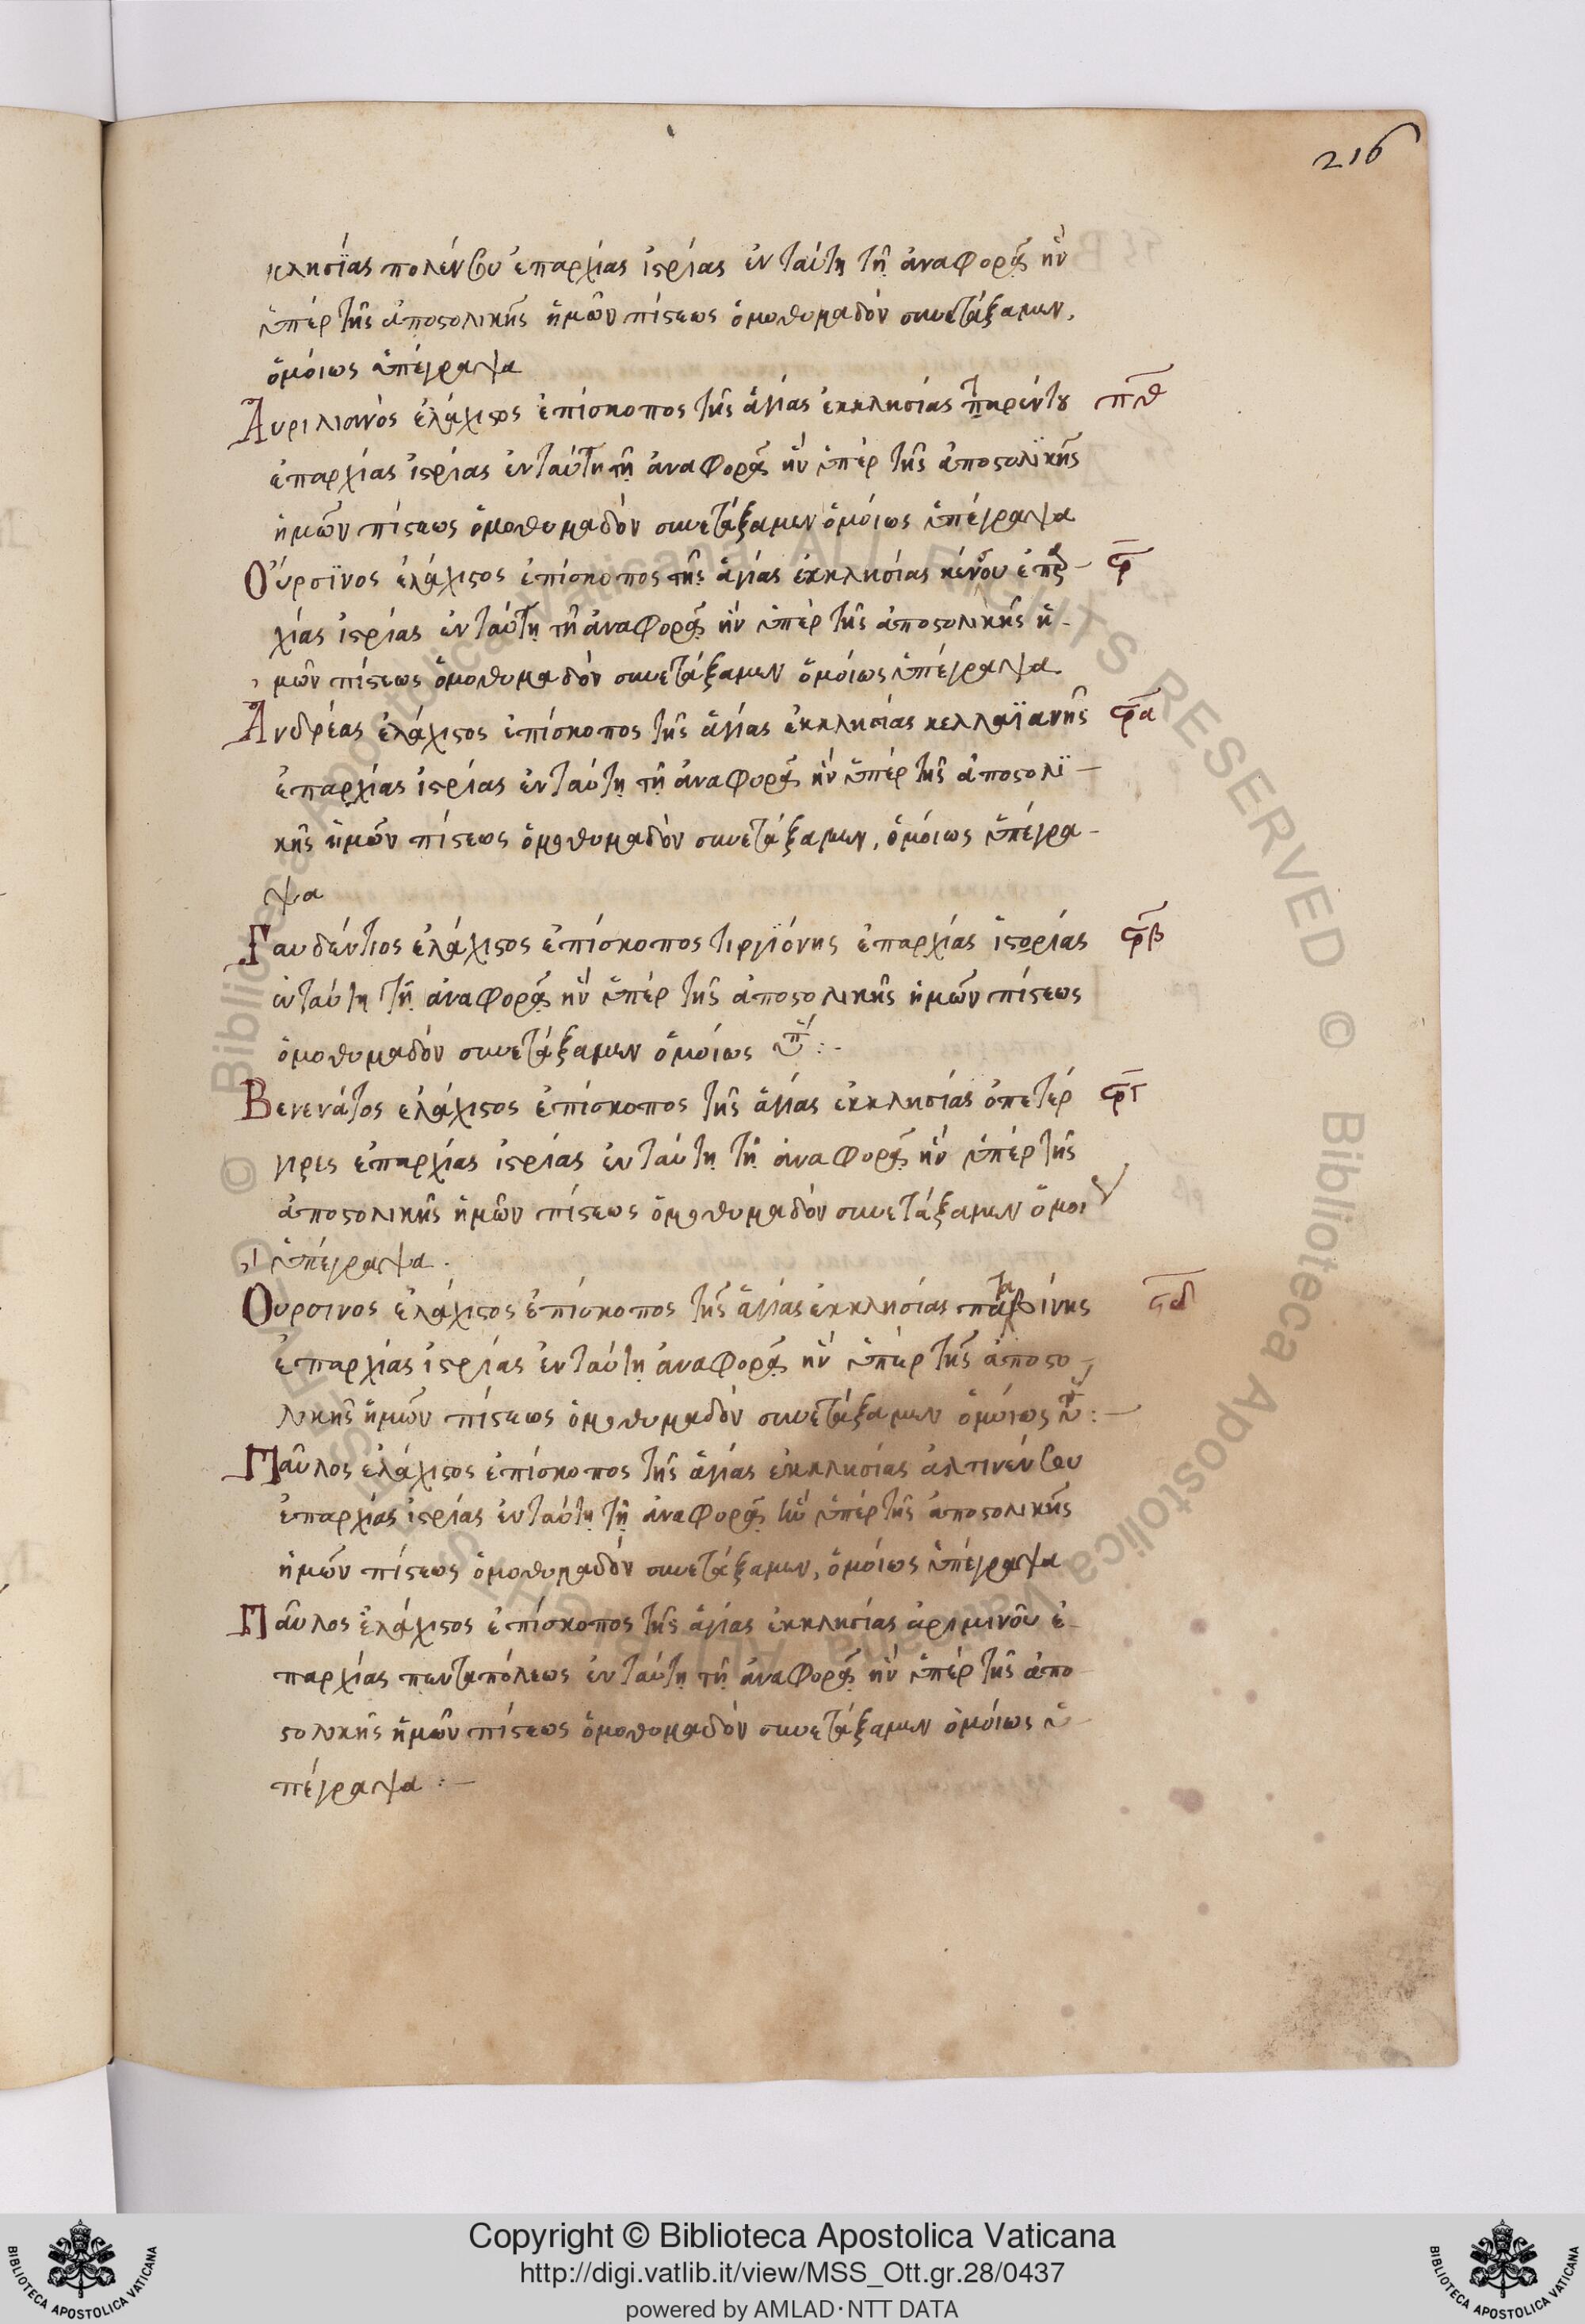 216
κλησίας πολέντου ἐπαρχίας ἰστρίας ἐν ταύτῃ τῇ ἀναφορᾷ ἣν
ὑπὲρ τῆς ἀποστολικῆς ἡμῶν πίστεως ὁμοθυμαδὸν συνετάξαμεν,
ὁμοίως ὑπέγραψα
Αυριλιανὸς ἐλάχιστος ἐπίσκοπος τῆς ἁγίας ἐκκλησίας παρέντου πθ
ἐπαρχίας ἰστρίας ἐν ταύτῃ τῇ ἀναφορᾷ ἣν ὑπὲρ τῆς ἀποστολϊκῆς
ἡμῶν πίστεως ὁμοθυμαδὸν συνετάξαμεν ὁμοίως ὑπέγραψα
Οὐρσϊνος ἐλάχιστος ἐπίσκοπος τῆς ἁγίας ἐκκλησίας κένου ἐπαρ– ϟ
χίας ἰστρίας ἐν ταύτῃ τῇ ἀναφορᾷ ἣν ὑπὲρ τῆς ἀποστολικῆς ἡ–
μῶν πίστεως ὁμοθυμαδὸν συνετάξαμεν ὁμοίως ὑπέγραψα
Ανδρέας ἐλάχιστος ἐπίσκοπος τῆς ἁγίας ἐκκλησίας κελλαϊανῆς ϟα
ἐπαρχίας ἰστρίας ἐν ταύτῃ τῇ ἀναφορᾷ ἣν ὑπὲρ τῆς ἀποστολϊ–
κῆς ἡμῶν πίστεως ὁμοθυμαδὸν συνετάξαμεν, ὁμοίως ὑπέγρα–
ψα
Γαυδέντιος ἐλάχιστος ἐπίσκοπος τιργϊόνης ἐπαρχίας ἱστορίας ϟβ
ἐν ταύτῃ τῇ ἀναφορᾷ ἣν ὑπὲρ τῆς ἀποστολικῆς ἡμῶν πίστεως
ὁμοθυμαδὸν συνετάξαμεν ὁμοίως ὑπ:–
Βενενάτος ἐλάχιστος ἐπίσκοπος τῆς ἁγίας ἐκκλησίας ὀπετέρ ϟγ
γιρες ἐπαρχίας ἰστρίας ἐν ταύτῃ τῇ ἀναφορᾷ ἣν ὑπὲρ τῆς
ἀποστολικῆς ἡμῶν πίστεως ὁμοθυμαδὸν συνετάξαμεν ὁμοι
ὑπέγραψα.
Ουρσινος ἐλάχιστος ἐπίσκοπος τῆς ἁγίας ἐκκλησίας παταβίνης ϟδ
ἐπαρχίας ἰστρίας ἐν ταύτῃ ἀναφορᾷ ἣν ὑπὲρ τῆς ἀποστο–
λικῆς ἡμῶν πίστεως ὁμοθυμαδὸν συνετάξαμεν ὁμοίως ὑπ:–
Παῦλος ἐλάχιστος ἐπίσκοπος τῆς ἁγίας ἐκκλησίας ἀλτινέντου
ἐπαρχίας ἰστρίας ἐν ταύτῃ τῇ ἀναφορᾷ ἣν ὑπὲρ τῆς ἀποστολικῆς
ἡμῶν πίστεως ὁμοθυμαδὸν συνετάξαμεν, ὁμοίως ὑπέγραψα
Παῦλος ἐλάχιστος ἐπίσκοπος τῆς ἁγίας ἐκκλησίας ἀριμινοῦ ἐ–
παρχίας πενταπόλεως ἐν ταύτῃ τῇ ἀναφορᾷ ἣν ὑπὲρ τῆς ἀπο–
στολικῆς ἡμῶν πίστεως ὁμοθυμαδὸν συνετάξαμεν ὁμοίως ὑ–
πέγραψα :–
© Biblioteca Apostolica Vaticana ALL RIGHTS RESERVED © Biblioteca Apostolica Vaticana ALL RIGHTS RESERVED ©
Copyright © Biblioteca Apostolica Vaticana
http://digi.vatlib.it/view/MSS_Ott.gr.28/0437
powered by AMLAD·NTT DATA
BIBLIOTECA APOSTOLICA VATICANA
BIBLIOTECA APOSTOLICA VATICANA